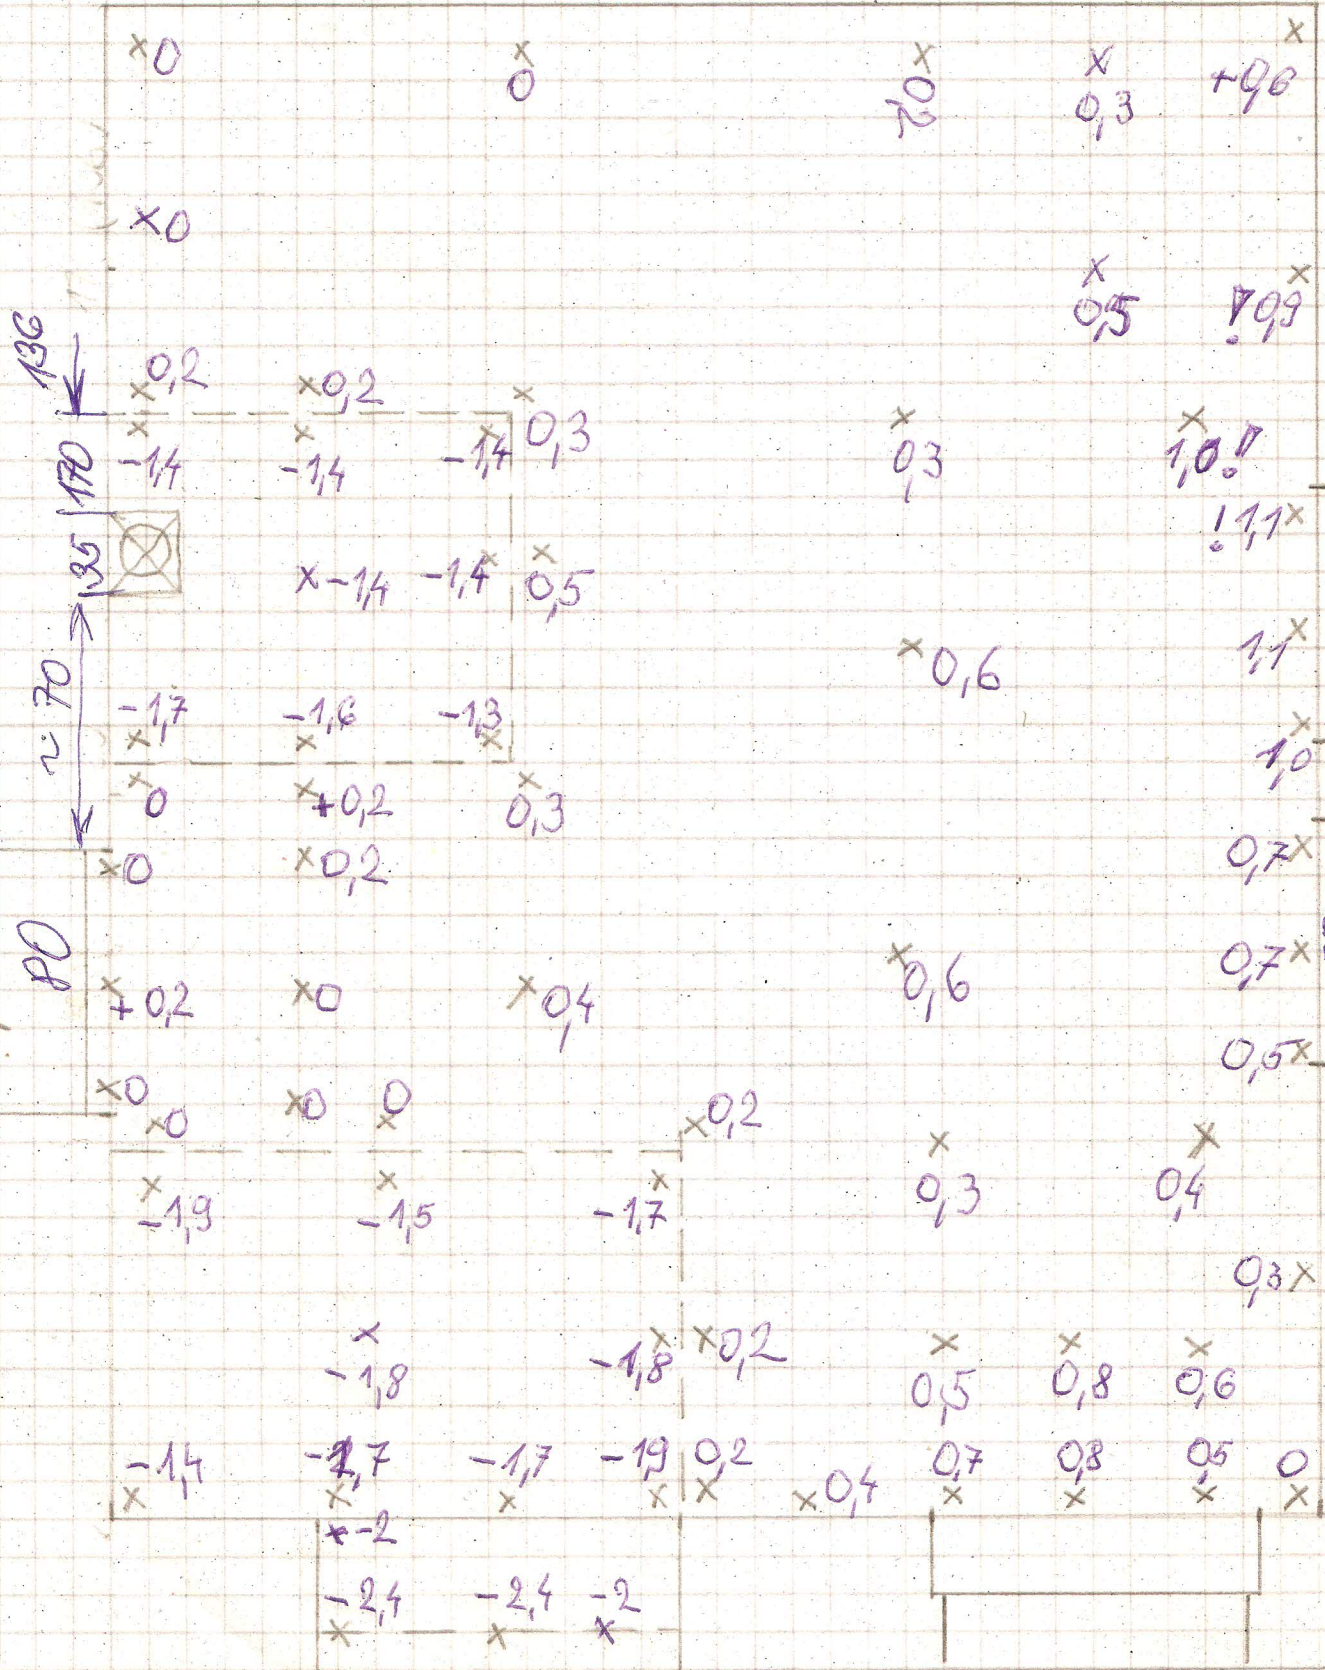 0 0 0,2 0,3 +0,6
0
0,5 ! 0,9
136
0,2 0,2 0,3
-1,4 -1,4 -1,4 0,3 1,0!
170
! 1,1
35 -1,4 -1,4 0,5
0,6 1,1
~ 70
-1,7 -1,6 -1,3
1,0
0 +0,2 0,3
0 0,2 0,7
80
0,7
+0,2 0 0,4 0,6
0,5
0 0 0
0 0,2
-1,9 -1,5 -1,7 0,3 0,4
0,3
-1,8 -1,8 0,2 0,5 0,8 0,6
-1,4 -1,7 -1,7 -1,9 0,2 0,4 0,7 0,8 0,5 0
-2
-2,4 -2,4 -2